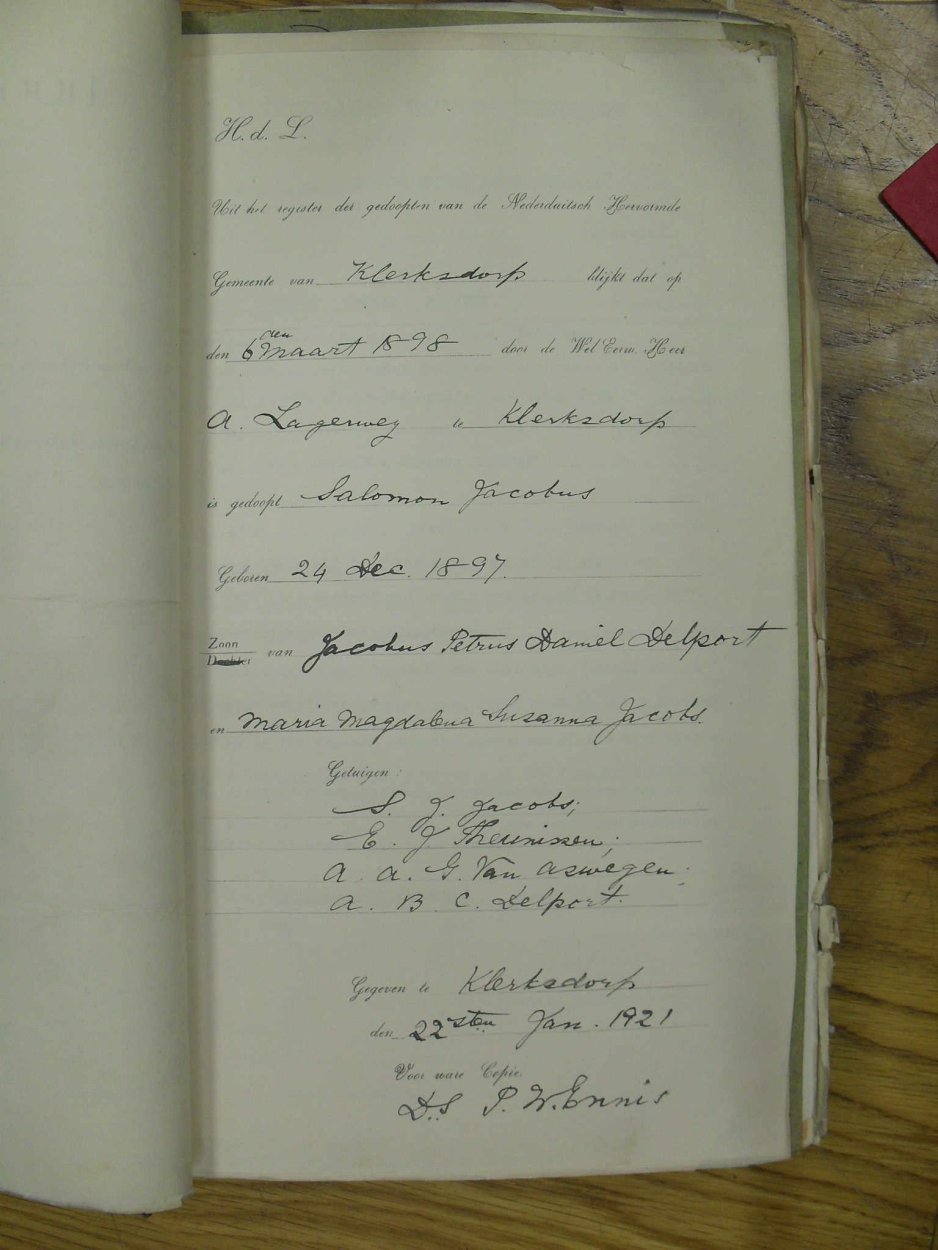 H. d. L.
Uit het register der gedoopten van de Nederduitsch Hervormde
Gemeente van Klerksdorp blijkt dat op
den 6den Maart 1898 door de Wel Eerw. Heer
A. Lagerwey te Klerksdorp
is gedoopt Salomon Jacobus
Geboren 24 Dec. 1897.
Zoon
Dochter van Jacobus Petrus Daniel Delport
en Maria Magdalena Susanna Jacobs.
Getuigen:
S. J. Jacobs;
E. J Theunissen;
A. A. G. Van Aswegen.
A. B. C. Delport.
Gegeven te Klerksdorp
den 22sten Jan. 1921
Voor ware Copie.
DS P. W. Ennis